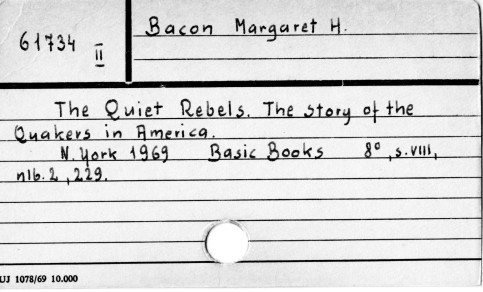 61734 II
Bacon Margaret H.
The Quiet Rebels. The story of the
Quakers in America.
N. York 1969 Basic Books 8°, s. VIII,
nlb. 2, 229.
UJ 1078/69 10.000